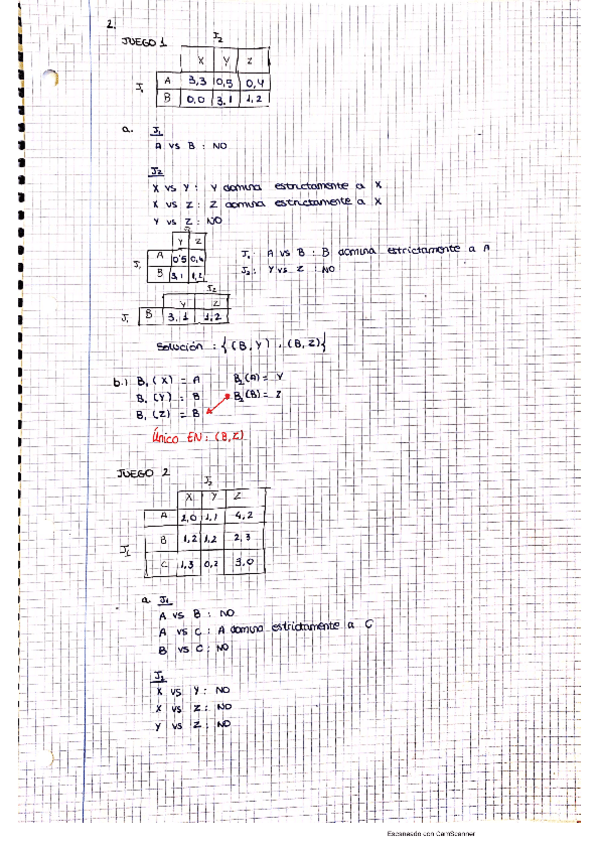 2.
JUEGO 1
J2
X Y Z
J1 A 3,3 0,5 0,4
B 0,0 3,1 1,2
a. J1
A vs B : NO
J2
X vs Y : Y domina estrictamente a X
X vs Z : Z domina estrictamente a X
Y vs Z : NO
Y Z
J1 A 0,5 0,4
B 3,1 1,2
J1 : A vs B : B domina estrictamente a A
J2 : Y vs Z : NO
J2
Y Z
J1 B 3,1 1,2
Solución : { (B,Y) , (B,Z) {
b.) B1 (X) = A B2 (A) = Y
B1 (Y) = B B2 (B) = Z
B1 (Z) = B
Único EN : (B,Z)
JUEGO 2
J2
X Y Z
A 2,0 1,1 4,2
J1 B 1,2 1,2 2,3
C 1,3 0,2 3,0
a. J1
A vs B : NO
A vs C : A domina estrictamente a C
B vs C : NO
J2
X vs Y : NO
X vs Z : NO
Y vs Z : NO
Escaneado con CamScanner